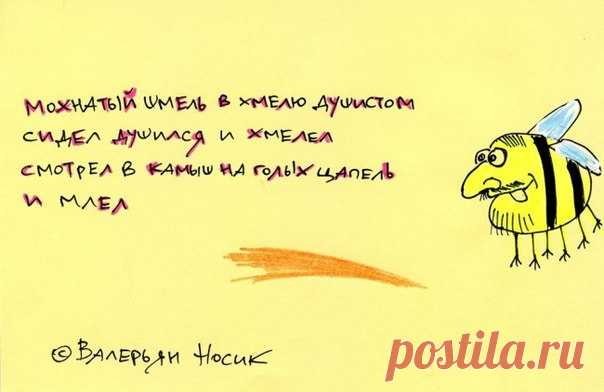 МОХНАТЫЙ ШМЕЛЬ В ХМЕЛЮ ДУШИСТОМ
СИДЕЛ ДУШИЛСЯ И ХМЕЛЕЛ
СМОТРЕЛ В КАМЫШ НА ГОЛЫХ ЦАПЕЛЬ
И МЛЕЛ
© ВАЛЕРЬЯН НОСИК
postila.ru